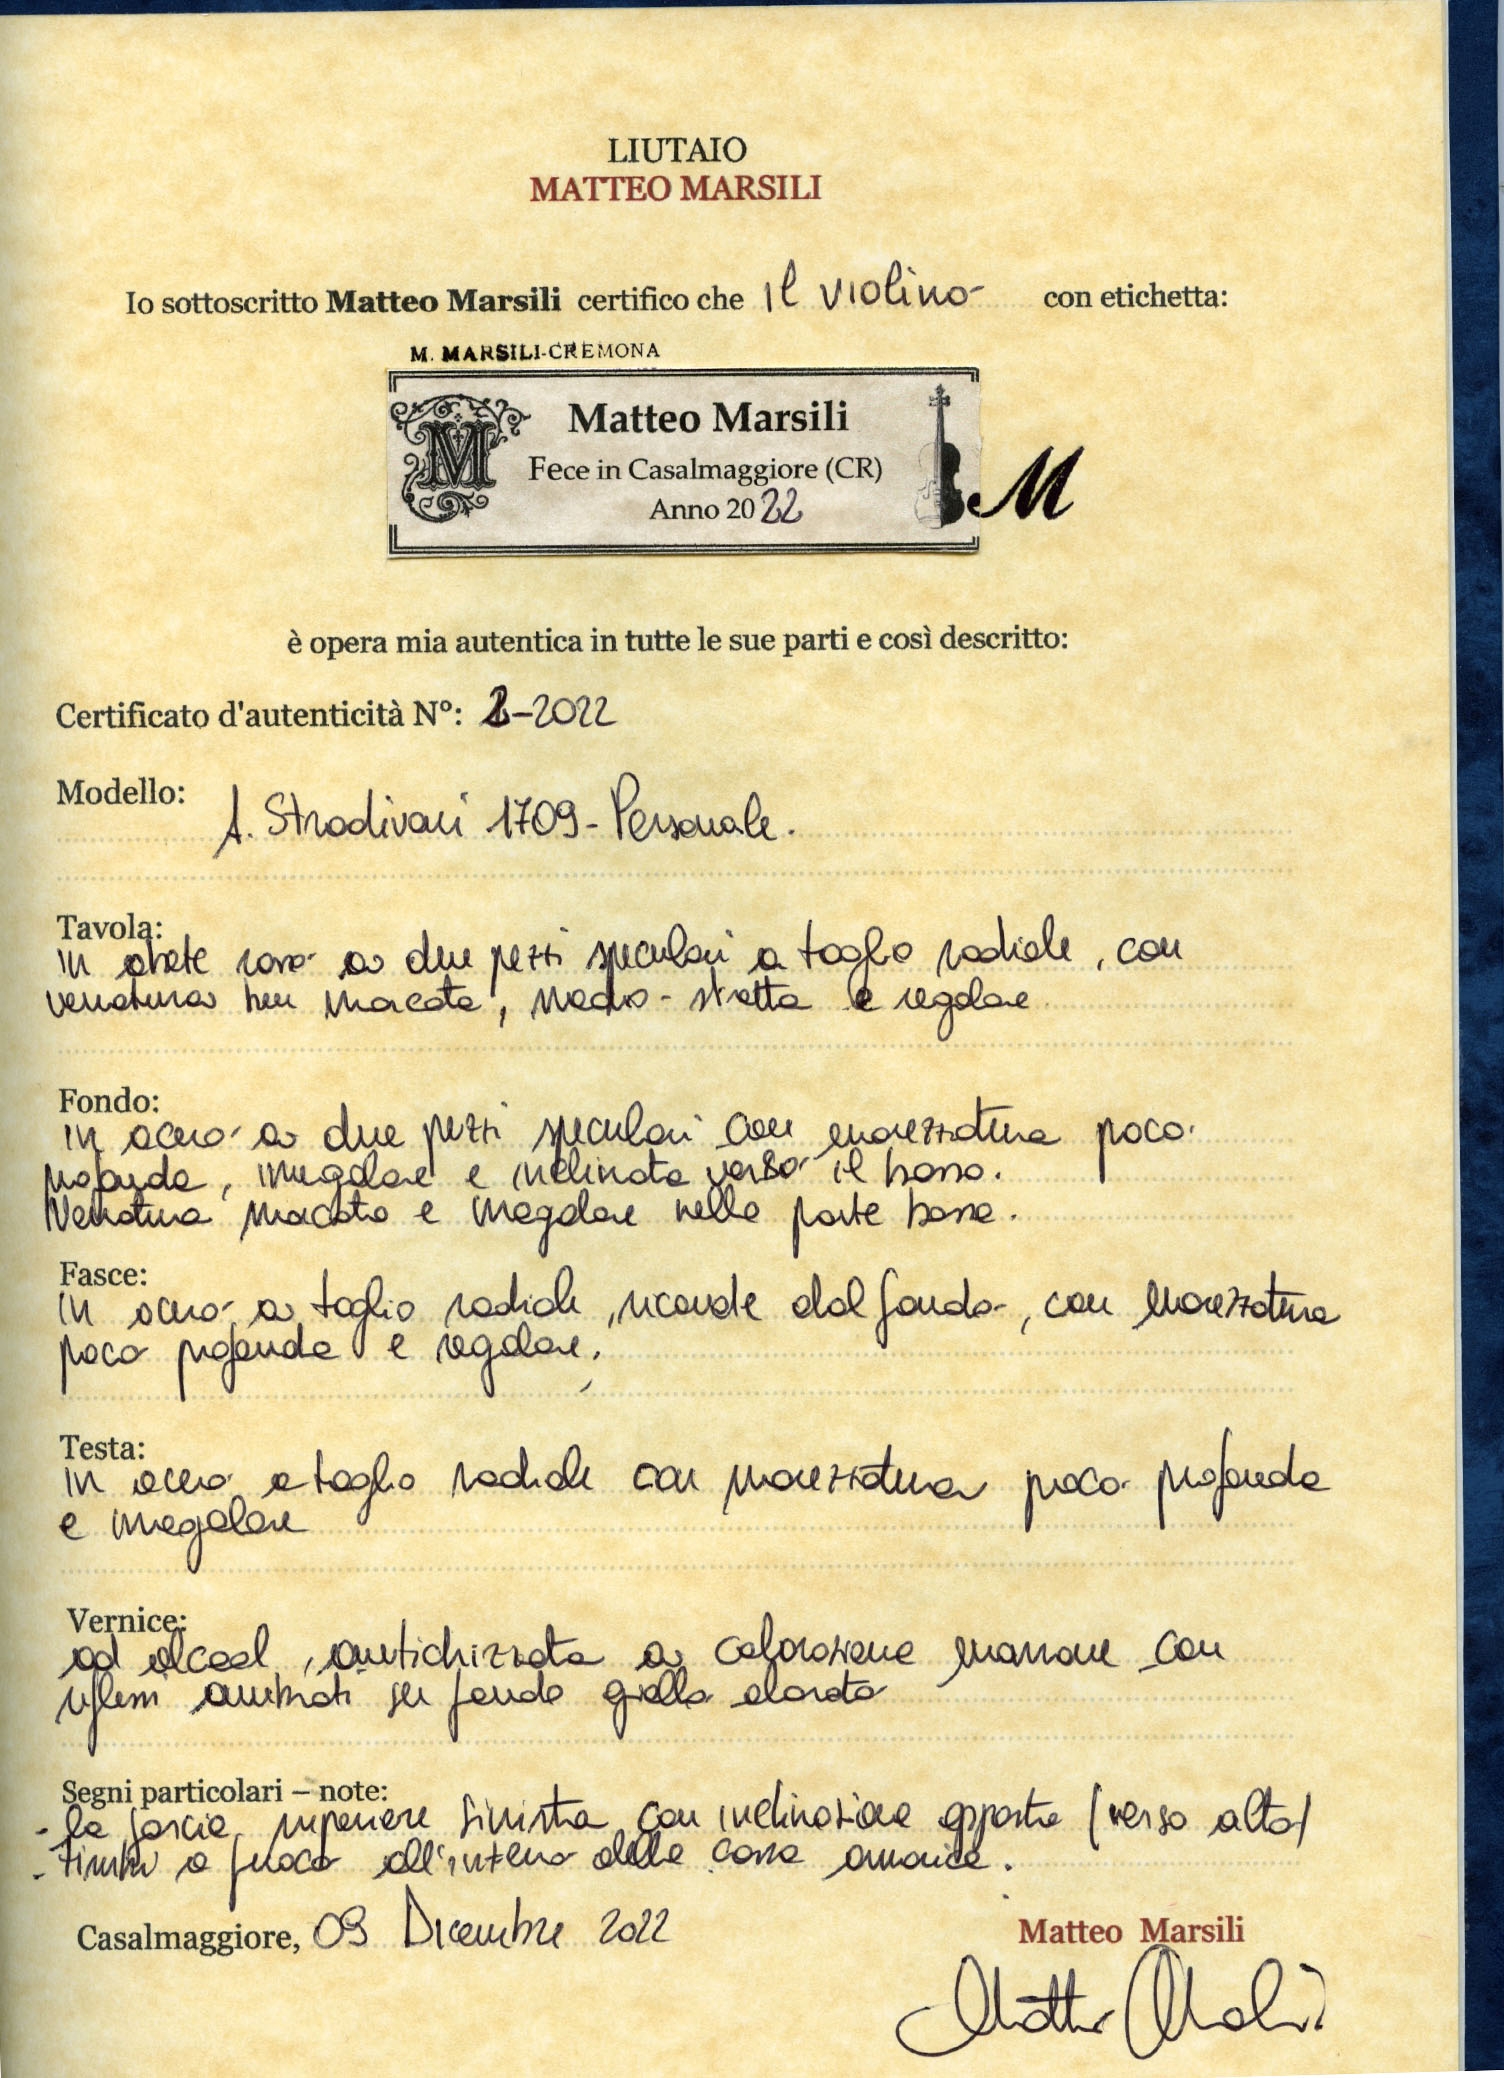 LIUTAIO
MATTEO MARSILI
Io sottoscritto Matteo Marsili certifico che il violino con etichetta:
M. MARSILI-CREMONA
M Matteo Marsili
Fece in Casalmaggiore (CR)
Anno 2022
M
è opera mia autentica in tutte le sue parti e così descritto:
Certificato d'autenticità N°: -2022
Modello:
A. Stradivari 1709 - Personale.
Tavola:
in abete rosso a due pezzi speculari a taglio radiale, con
venatura ben marcata, medio-stretta e regolare
Fondo:
in acero a due pezzi speculari con marezzatura poco
profonda, irregolare e inclinata verso il basso.
Venatura marcata e irregolare nella parte bassa.
Fasce:
in acero a taglio radiale, ricavate dal fondo, con marezzatura
poco profonda e regolare.
Testa:
in acero a taglio radiale con marezzatura poco profonda
e irregolare
Vernice:
ad alcool, antichizzata a colorazione marrone con
riflessi ambrati su fondo giallo dorato
Segni particolari – note:
- la fascia superiore sinistra con inclinazione opposta (verso alto)
- timbri a fuoco all'interno della cassa armonica.
Casalmaggiore, 09 Dicembre 2022
Matteo Marsili
Matteo Marsili